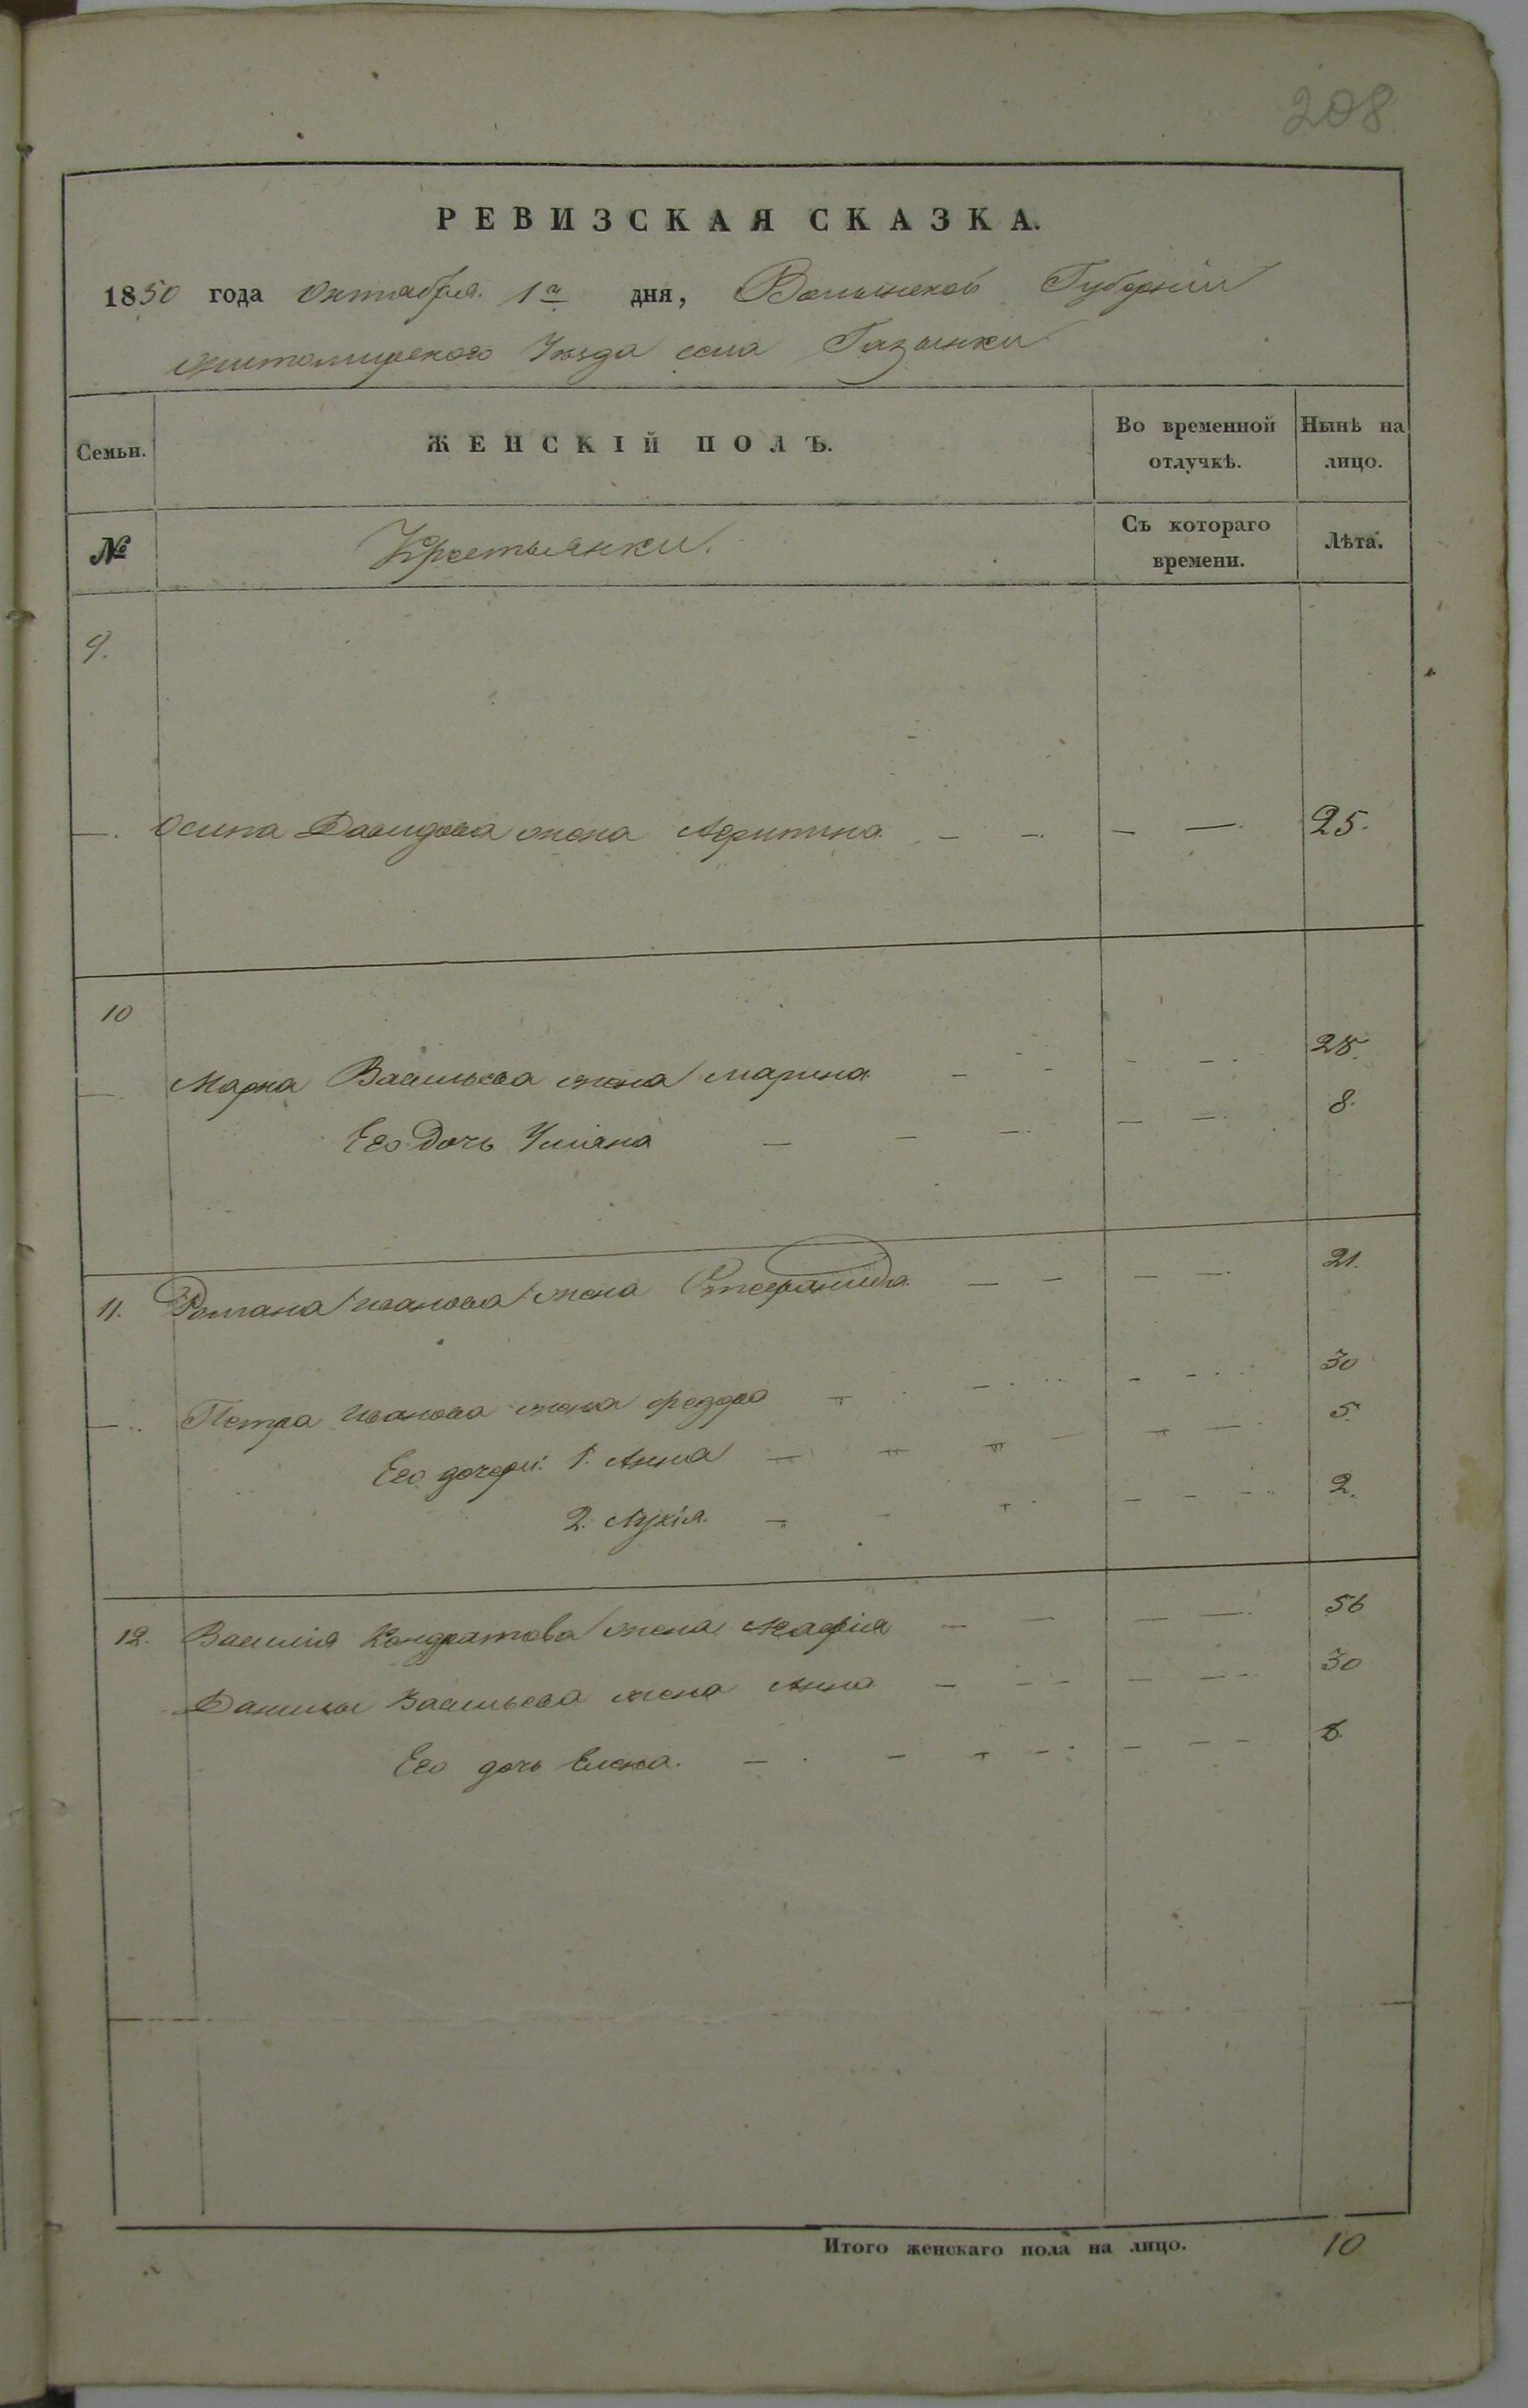 208
РЕВИЗСКАЯ СКАЗКА.
1850 года Октября 1го дня, Волынской Губерніи
Житомирского Уѣзда села Газынки
Семьи. ЖЕНСКІЙ ПОЛЪ. Во временной отлучкѣ. Нынѣ на лицо.
№ Крестьянки. Съ котораго времени. Лѣта.
9.
—. Осипа Давидова жена — —. — —. 25.
10
—. Марка Васильева жена Марина — - - - . 28.
Его Дочь Уліяна — — —. — —. 8.
11. Романа Иванова жена Стефанида — — — —. 21.
—.. Петра Иванова жена 30
Его дочери: 1. Анна 5.
2. Лукія. 2.
12. Василія Кондратова жена — — — —. 56
Данилы Васильева жена Анна — - - — — - 30
Его дочь Елена. 8.
Итого женскаго пола на лицо. 10